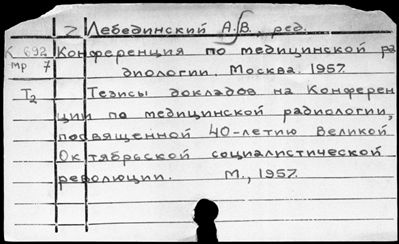 > Лебединский А.В., ред.
К 692 Конференция по медицинской ра
мр 7 диологии. Москва. 1957.
Т2 Тезисы докладов на Конферен
ции по медицинской радиологии,
посвященной 40-летию Великой
Октябрьской социалистической
революции. М., 1957.